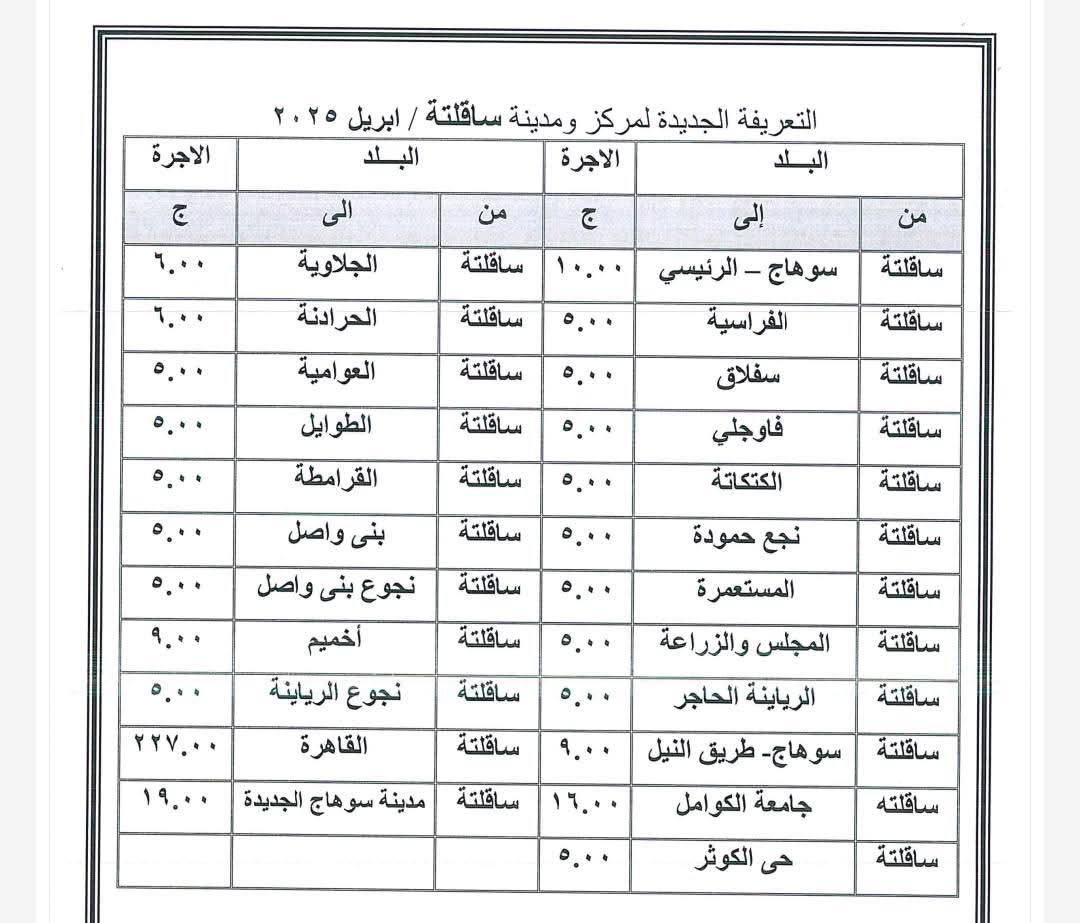 التعريفة الجديدة لمركز ومدينة ساقلتة / ابريل ٢٠٢٥
البـــلد الاجرة البـــلد الاجرة
من إلى ج من الى ج
ساقلتة سوهاج – الرئيسي ١٠.٠٠ ساقلتة الجلاوية ٦.٠٠
ساقلتة الفراسية ٥.٠٠ ساقلتة الحرادنة ٦.٠٠
ساقلتة سفلاق ٥.٠٠ ساقلتة العوامية ٥.٠٠
ساقلتة فاوجلي ٥.٠٠ ساقلتة الطوايل ٥.٠٠
ساقلتة الكتكاتة ٥.٠٠ ساقلتة القرامطة ٥.٠٠
ساقلتة نجع حمودة ٥.٠٠ ساقلتة بنى واصل ٥.٠٠
ساقلتة المستعمرة ٥.٠٠ ساقلتة نجوع بنى واصل ٥.٠٠
ساقلتة المجلس والزراعة ٥.٠٠ ساقلتة أخميم ٩.٠٠
ساقلتة الرياينة الحاجر ٥.٠٠ ساقلتة نجوع الرياينة ٥.٠٠
ساقلتة سوهاج- طريق النيل ٩.٠٠ ساقلتة القاهرة ٢٢٧.٠٠
ساقلته جامعة الكوامل ١٦.٠٠ ساقلتة مدينة سوهاج الجديدة ١٩.٠٠
ساقلتة حى الكوثر ٥.٠٠